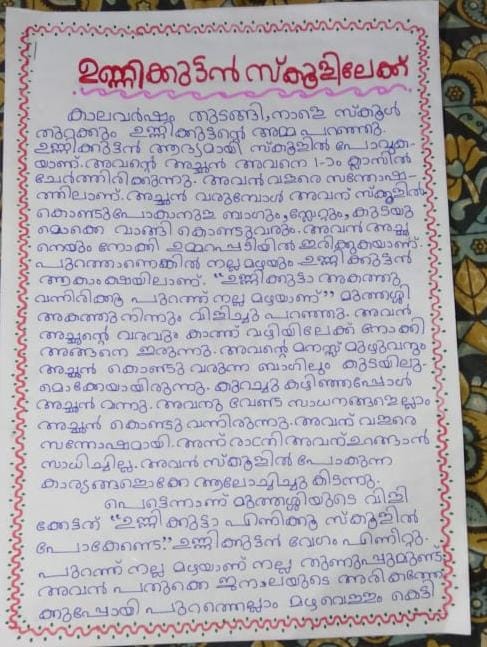 ഉണ്ണിക്കുട്ടൻ സ്കൂളിലേക്ക്
കാലവർഷം തുടങ്ങി, നാളെ സ്കൂൾ
തുറക്കും ഉണ്ണിക്കുട്ടന്റെ അമ്മ പറഞ്ഞു.
ഉണ്ണിക്കുട്ടൻ ആദ്യമായി സ്കൂളിൽ പോവുക-
യാണ്. അവന്റെ അച്ഛൻ അവനെ 1-ാം ക്ലാസിൽ
ചേർത്തിരിക്കുന്നു. അവൻ വളരെ സന്തോഷ-
ത്തിലാണ്. അച്ഛൻ വരുമ്പോൾ അവന് സ്കൂളിൽ
കൊണ്ടുപോകാനുള്ള ബാഗും, സ്ലേറ്റും, കുടയു
മൊക്കെ വാങ്ങി കൊണ്ടുവരും. അവൻ അച്ഛ
നെയും നോക്കി ഉമ്മറപ്പടിയിൽ ഇരിക്കുകയാണ്.
പുറത്താണെങ്കിൽ നല്ല മഴയും ഉണ്ണിക്കുട്ടൻ
ആകാംക്ഷയിലാണ്. "ഉണ്ണിക്കുട്ടാ അകത്തു
വന്നിരിക്കൂ പുറത്ത് നല്ല മഴയാണ്" മുത്തശ്ശി
അകത്തു നിന്നും വിളിച്ചു പറഞ്ഞു. അവൻ
അച്ഛന്റെ വരവും കാത്ത് വഴിയിലേക്ക് നോക്കി
അങ്ങനെ ഇരുന്നു. അവന്റെ മനസ്സ് മുഴുവനും
അച്ഛൻ കൊണ്ടു വരുന്ന ബാഗിലും കുടയിലു-
മൊക്കേയായിരുന്നു. കുറച്ചു കഴിഞ്ഞപ്പോൾ
അച്ഛൻ വന്നു. അവനു വേണ്ട സാധനങ്ങളെല്ലാം
അച്ഛൻ കൊണ്ടു വന്നിരുന്നു. അവന് വളരെ
സന്തോഷമായി. അന്ന് രാത്രി അവന് ഉറങ്ങാൻ
സാധിച്ചില്ല. അവൻ സ്കൂളിൽ പോകുന്ന
കാര്യങ്ങളൊക്കേ ആലോച്ചിച്ചു കിടന്നു.
പെട്ടെന്നാണ് മുത്തശ്ശിയുടെ വിളി
ക്കേട്ടത് "ഉണ്ണിക്കുട്ടാ എണിക്കൂ സ്കൂളിൽ
പോകേണ്ടെ." ഉണ്ണിക്കുട്ടൻ വേഗം എണിറ്റു.
പുറത്ത് നല്ല മഴയാണ് നല്ല തണുപ്പുമുണ്ട്.
അവൻ പതുക്കെ ജനാലയുടെ അരികത്തേ
ക്കുപ്പോയി പുറത്തെല്ലാം മഴവെള്ളം കെട്ടി